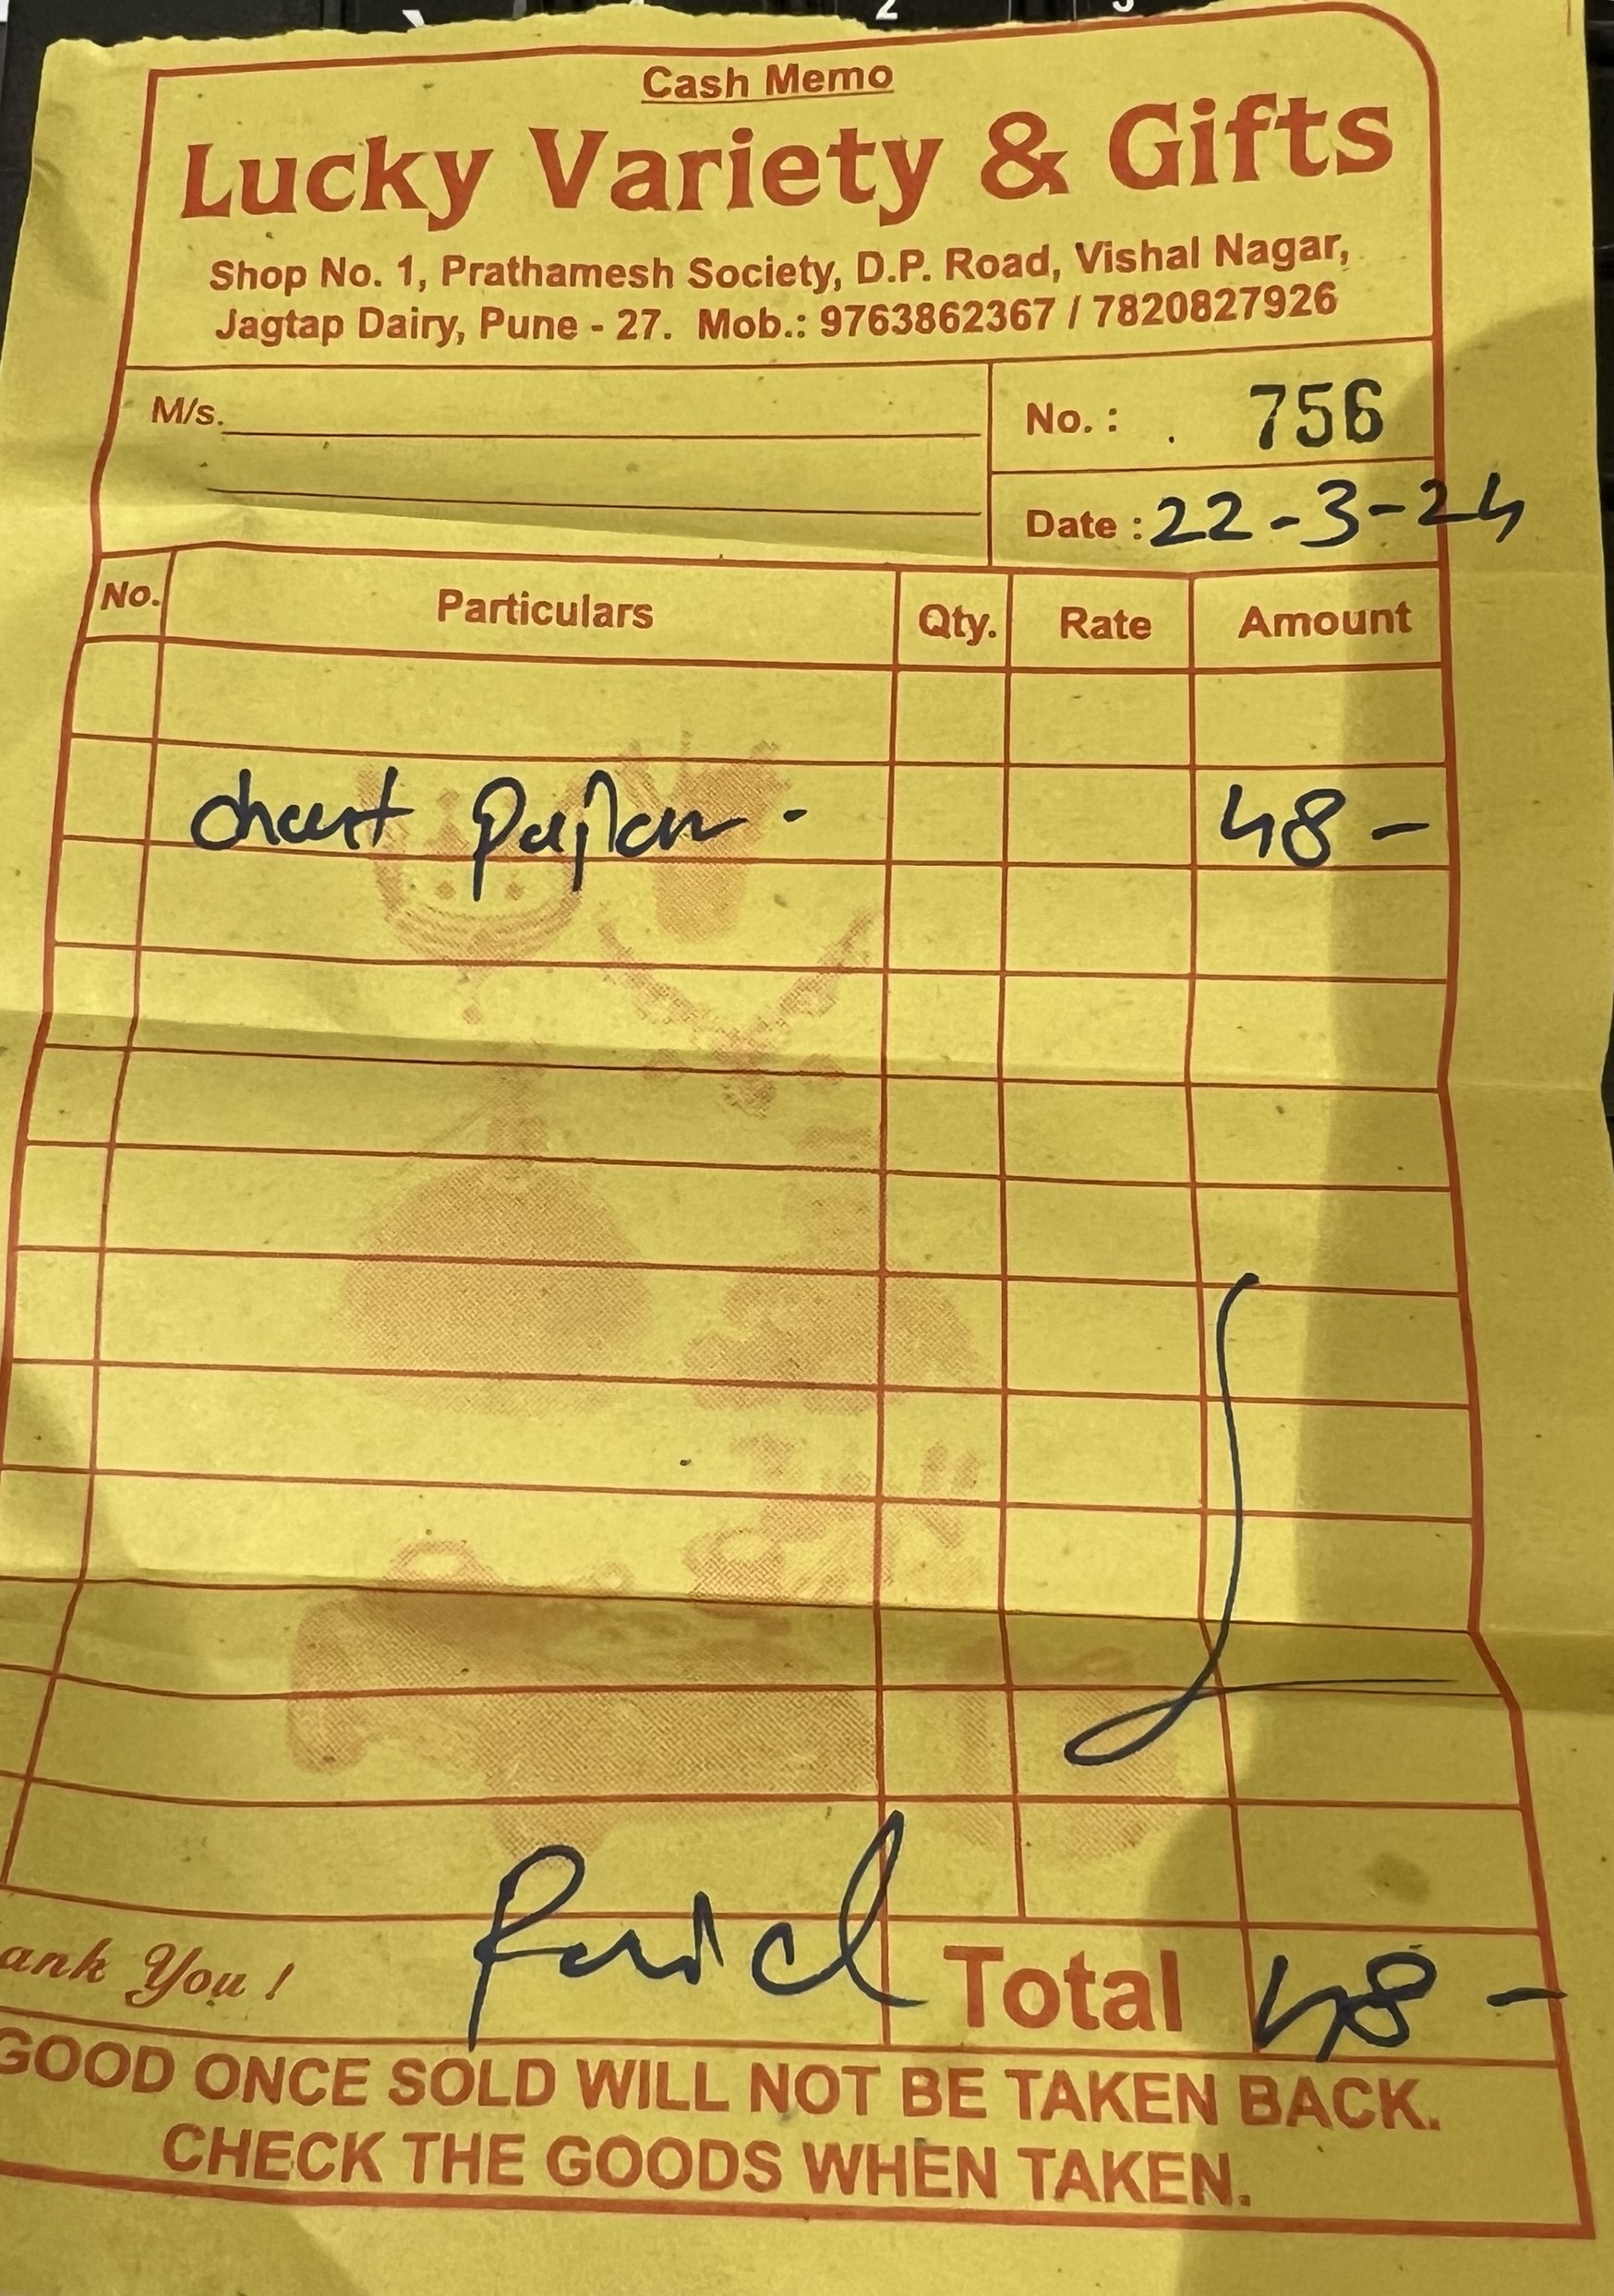 Cash Memo
Lucky Variety & Gifts
Shop No. 1, Prathamesh Society, D.P. Road, Vishal Nagar,
Jagtap Dairy, Pune - 27. Mob.: 9763862367 / 7820827926
M/s.
No. : 756
Date : 22-3-24
No. Particulars Qty. Rate Amount
chart 48-
ank You !
Paid
Total 48-
GOOD ONCE SOLD WILL NOT BE TAKEN BACK.
CHECK THE GOODS WHEN TAKEN.